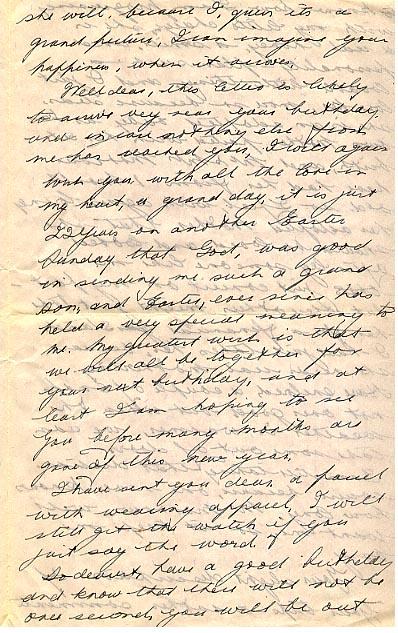 she will, because I, guess its a
grand picture, I can imagine your
happiness, when it arrives.
Well dear, this letter is likely
to arrive very near your birthday,
and in case nothing else from
me has reached you, I will again
wish you with all the love in
my heart, a grand day, it is just
22 years on another Easter
Sunday that God, was good
in sending me such a grand
son, and Easter, ever since has
held a very special meaning to
me. My greatest wish is that
we will all be together for
your next birthday, and at
least I am hoping to see
you before many months are
gone of this new year.
I have sent you dear, a parcel
with wearing apparel, I will
still get the watch if you
just say the word.
So dearest, have a good birthday
and know that there will not be
one second, you will be out